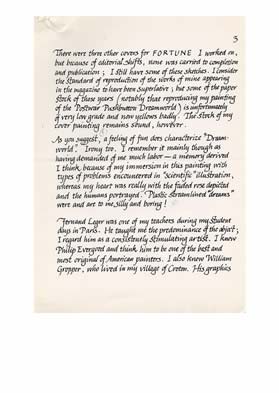 3
There were three other covers for FORTUNE I worked on,
but because of editorial shifts, none was carried to completion
and publication; I still have some of these sketches. I consider
the standard of reproduction of the works of mine appearing
in the magazine to have been superlative; but some of the paper
stock of those years (notably that reproducing my painting
of the Postwar Pushbutton Dreamworld) is unfortunately
of very low grade and now yellows badly. The stock of my
cover painting remains sound, however.
As you suggest, a feeling of fun does characterize "Dream-
world". Irony too. I remember it mainly though as
having demanded of me much labor — a memory derived
I think because of my immersion in this painting with
types of problems encountered in "scientific" illustration,
whereas my heart was really with the faded rose depicted
and the humans portrayed. Plastic streamlined "dreams"
were and are to me, silly and boring!
Fernand Leger was one of my teachers during my student
days in Paris. He taught me the predominance of the object;
I regard him as a consistently stimulating artist. I knew
Philip Evergood and think him to be one of the best and
most original of American painters. I also knew William
Gropper, who lived in my village of Croton. His graphics